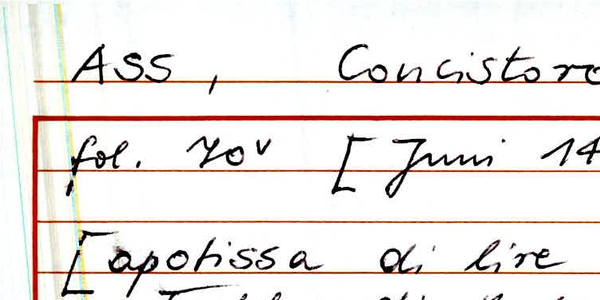 ASS, Concistoro
fol. 70v [Juni 14
[apotissa di lire